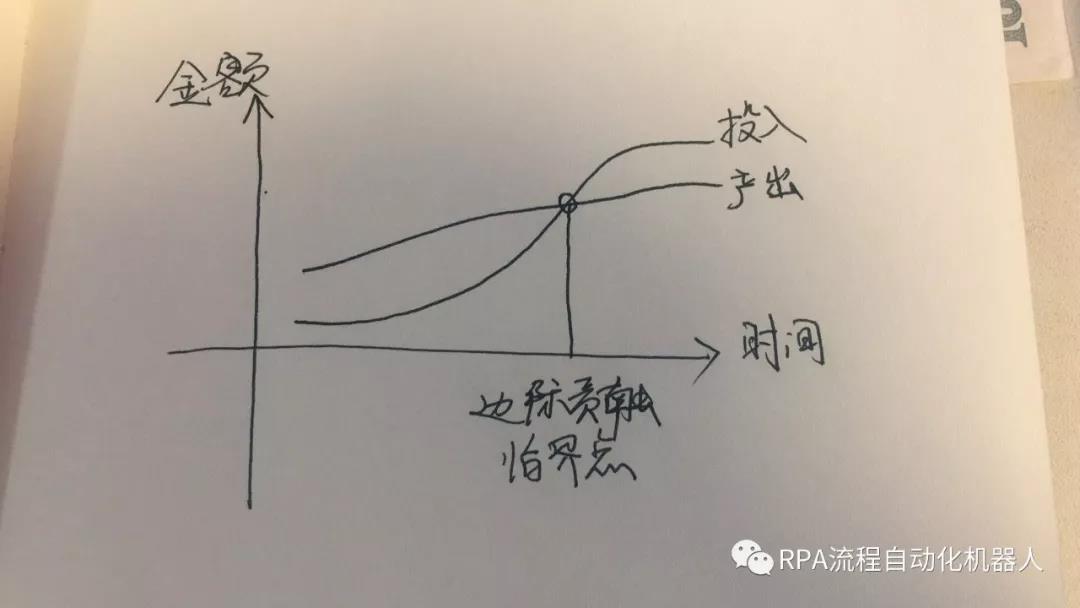 金额
投入
产出
时间
边际贡献
临界点
RPA流程自动化机器人